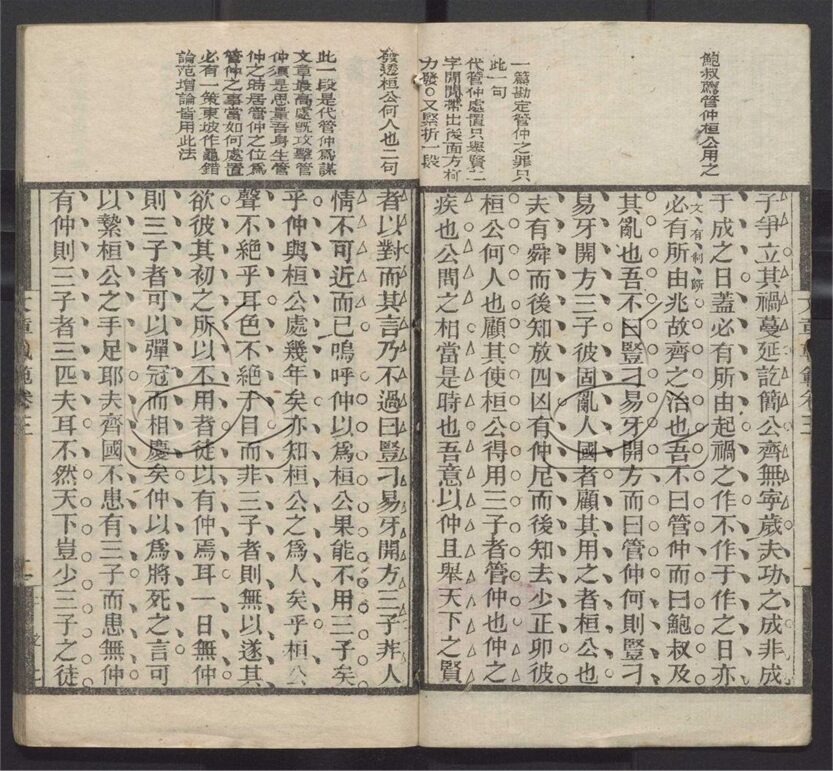 鮑叔薦管仲桓公用之
一篇勘定管仲之罪只
此一句
代管仲處置只舉賢二
字閒閒帶出後面方極
力發○又緊折一段
子爭立其禍蔓延訖簡公齊無寧歲夫功之成非成
于成之日蓋必有所由起禍之作不作于作之日亦
文有制斷
必有所由兆故齊之治也吾不曰管仲而曰鮑叔及
其亂也吾不曰豎刁易牙開方而曰管仲何則豎刁
易牙開方三子彼固亂人國者顧其用之者桓公也
夫有舜而後知放四凶有仲尼而後知去少正卯彼
桓公何人也顧其使桓公得用三子者管仲也仲之
疾也公問之相當是時也吾意以仲且舉天下之賢
發透桓公何人也二句
此一段是代管仲爲謀
文章最高處旣攻擊管
仲須是思量吾身生管
仲之時居管仲之位爲
管仲之事當如何處置
必有一策東坡作鼂錯
論范增論皆用此法
者以對而其言乃不過曰豎刁易牙開方三子非人
情不可近而已嗚呼仲以爲桓公果能不用三子矣
乎仲與桓公處幾年矣亦知桓公之爲人矣乎桓公
聲不絕乎耳色不絕于目而非三子者則無以遂其
欲彼其初之所以不用者徒以有仲焉耳一日無仲
則三子者可以彈冠而相慶矣仲以爲將死之言可
以縶桓公之手足耶夫齊國不患有三子而患無仲
有仲則三子者三匹夫耳不然天下豈少三子之徒